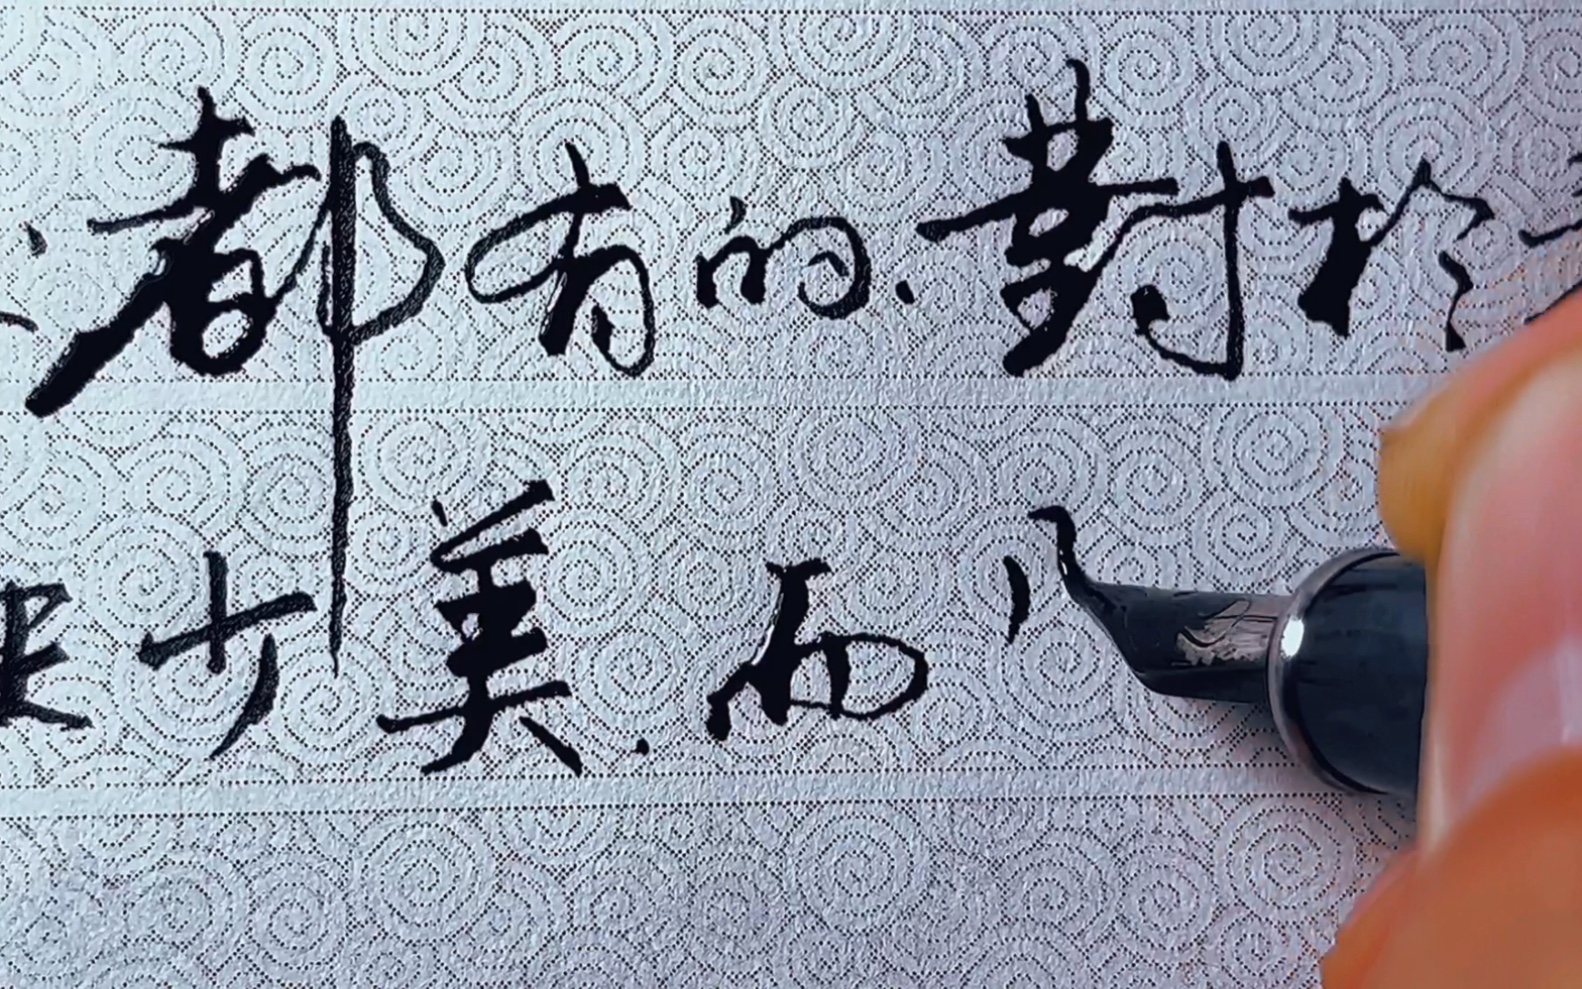 都有的.對於
少美.而